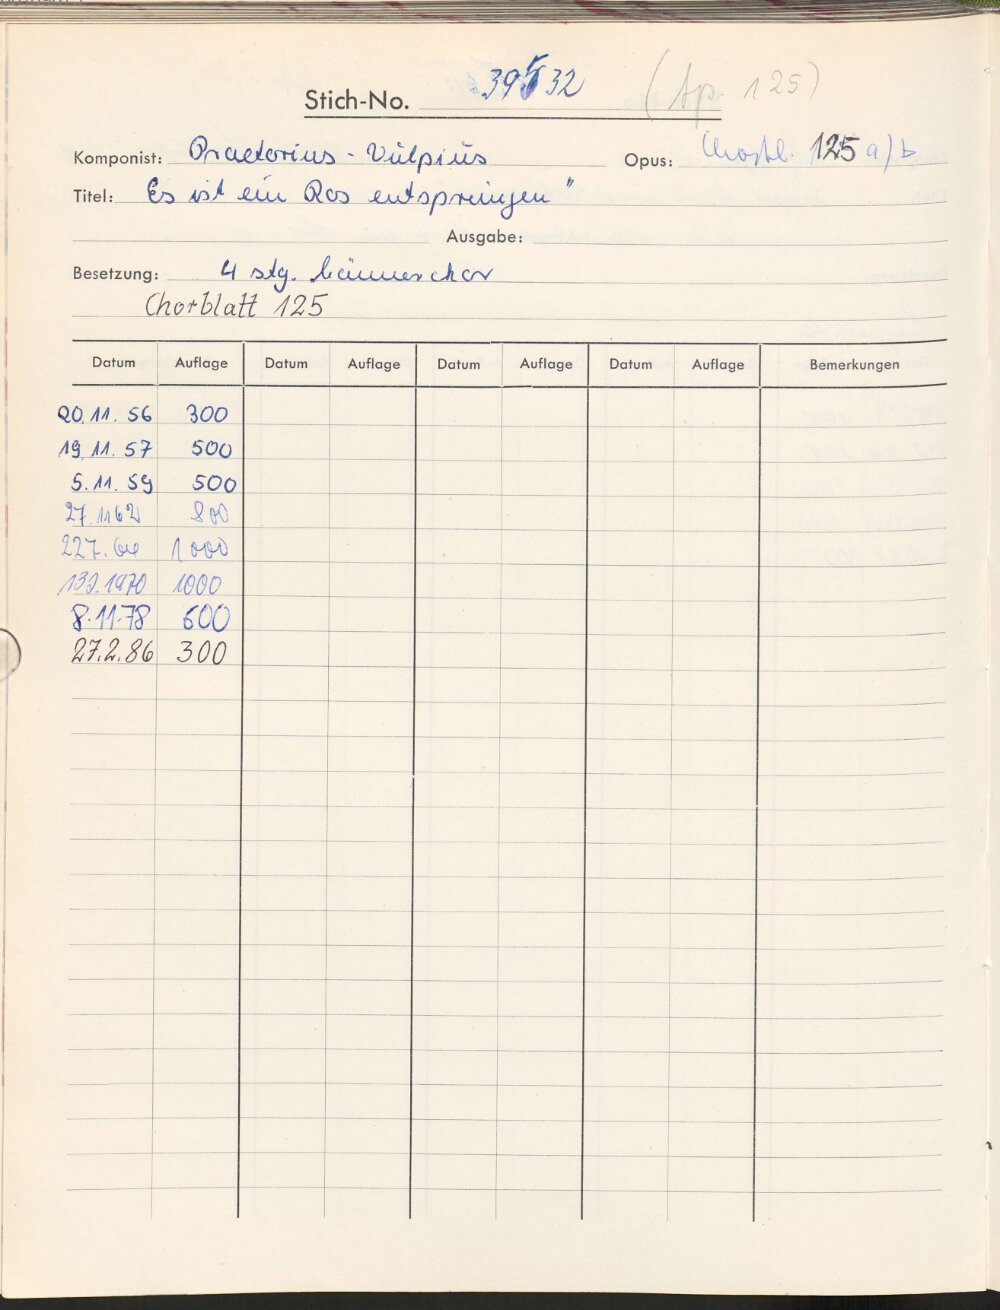 Stich-No. 39532 (Sp. 125)
Komponist: Praetorius - Vulpius Opus: Chorbl. 125 a/b
Titel: Es ist ein Ros entspringen"
Ausgabe:
Besetzung: 4 stg. Männerchor
Chorblatt 125
Datum Auflage Datum Auflage Datum Auflage Datum Auflage Bemerkungen
20.11.56 300
19.11.57 500
5.11.59 500
27.1162 800
227.64 1000
1970 1000
8.11.78 500
27.2.86 300